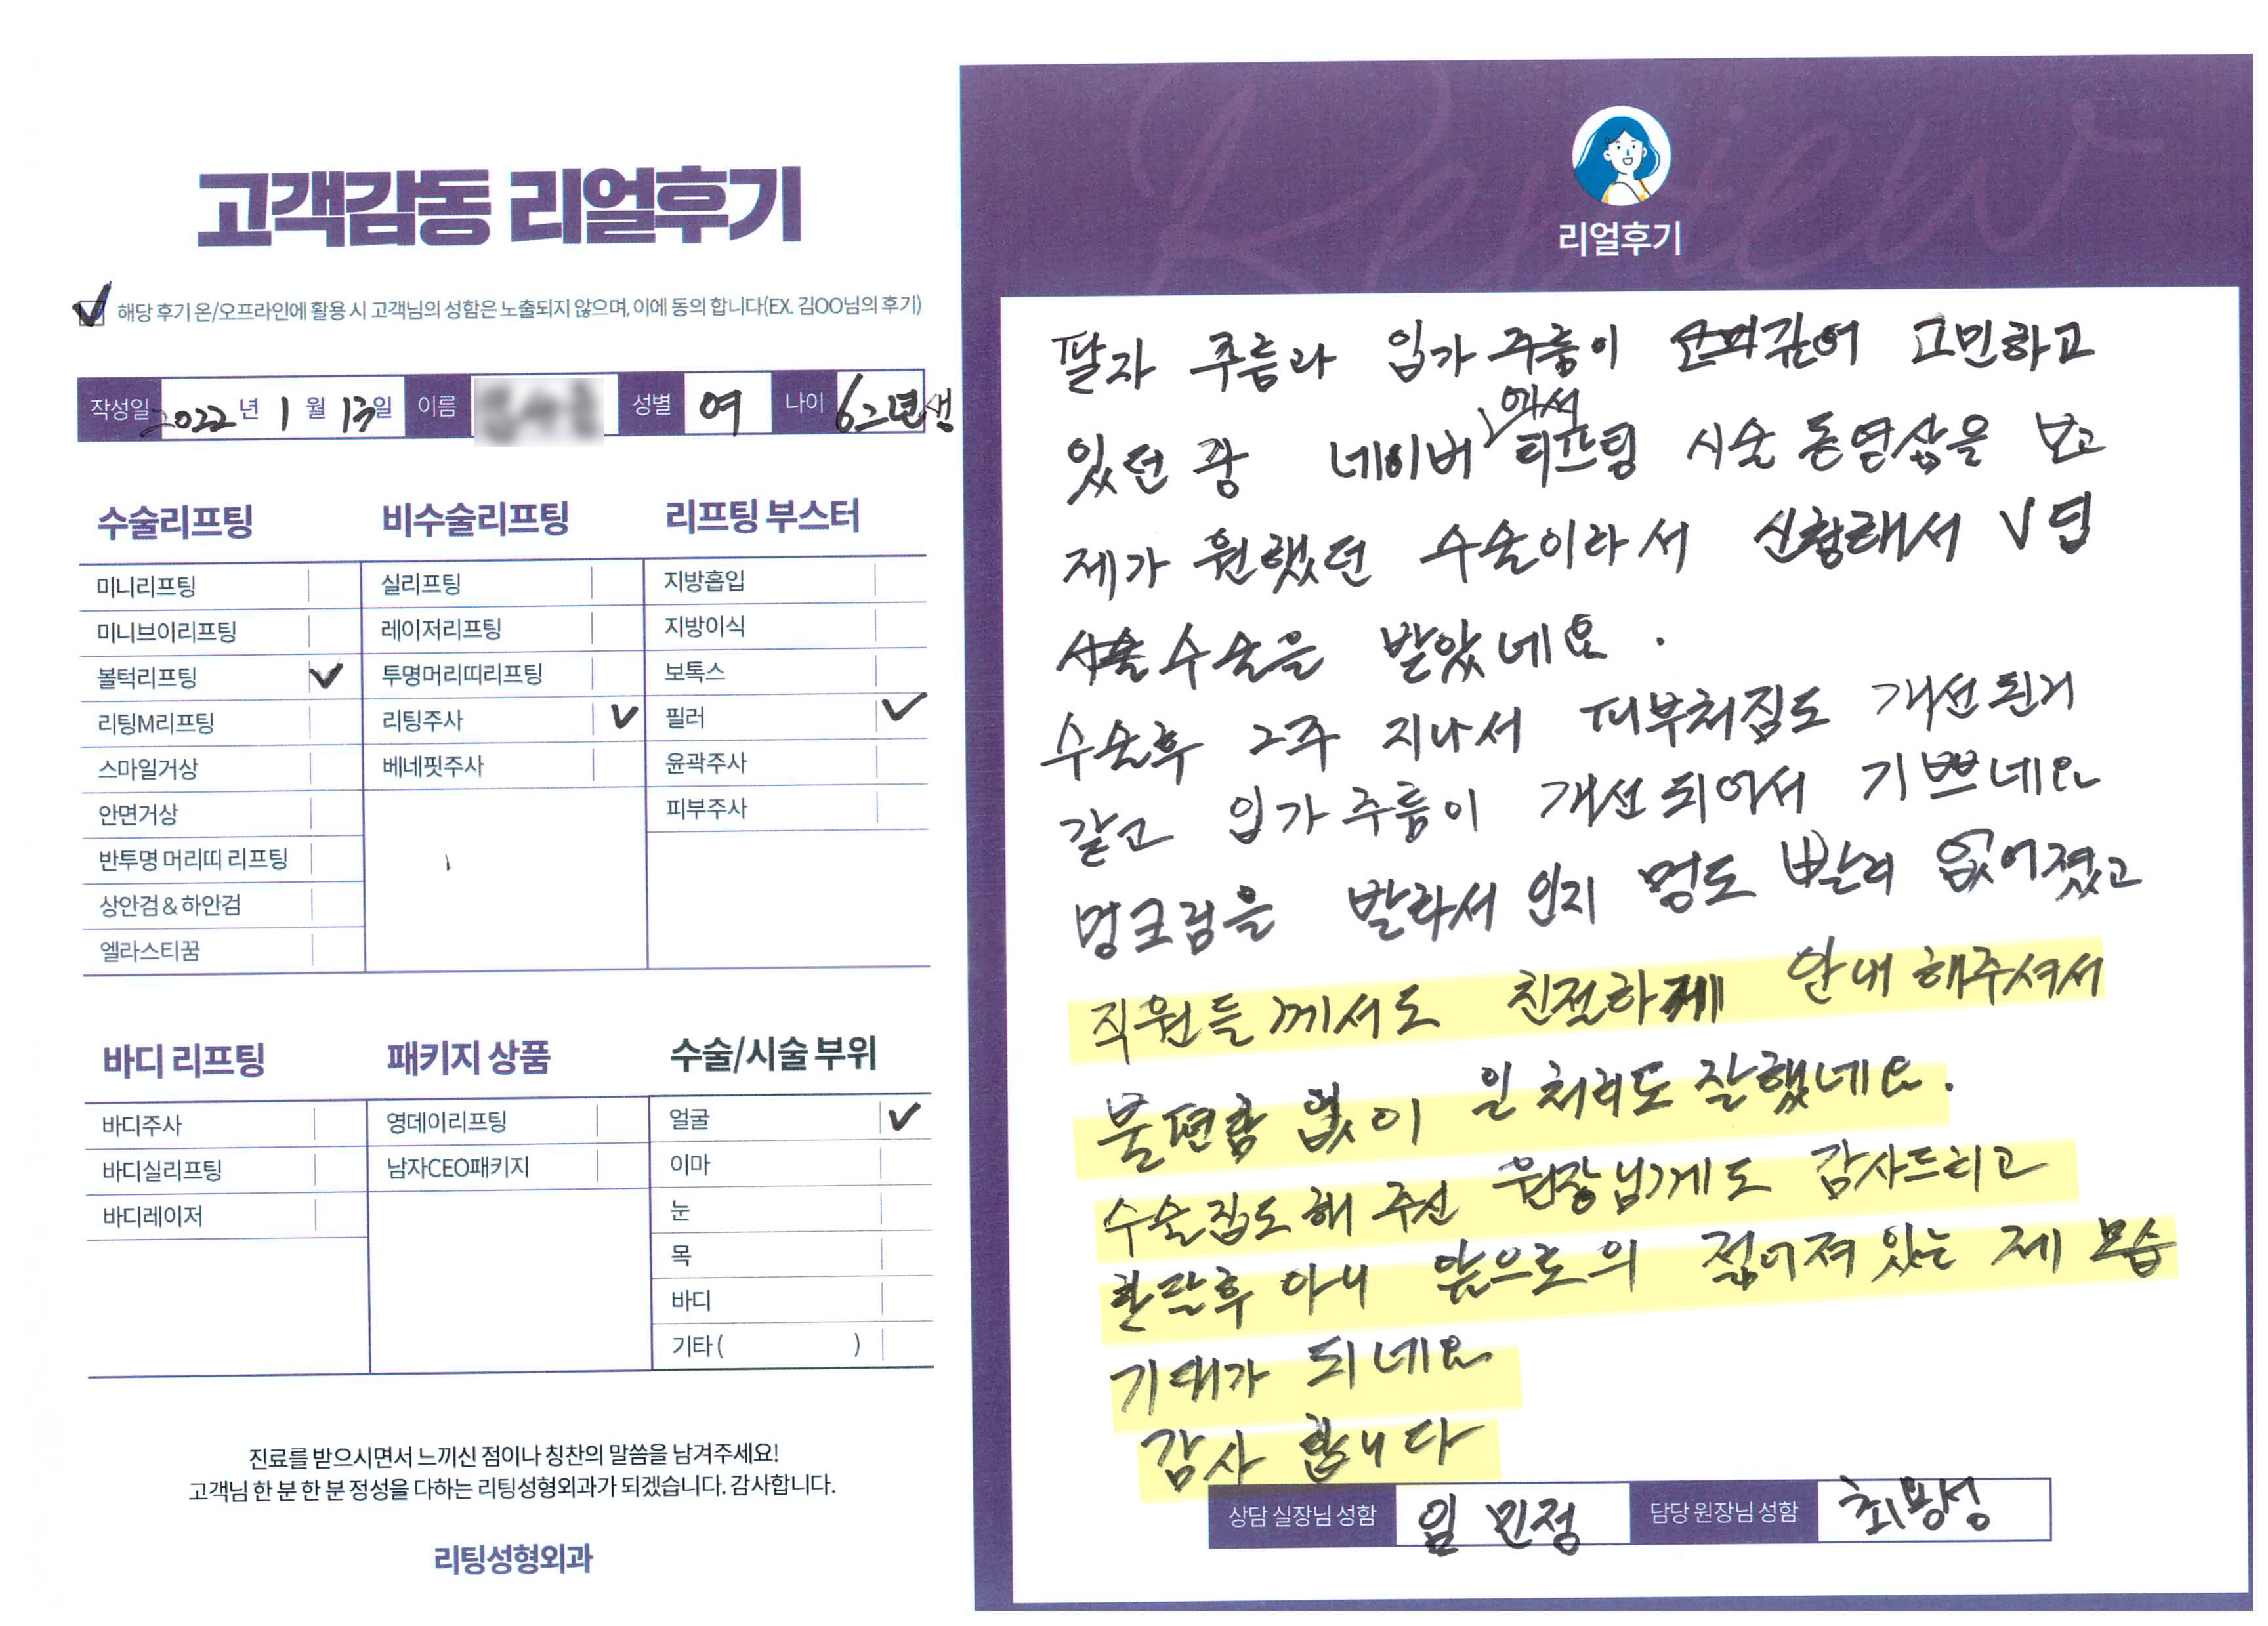 고객감동 리얼후기
해당 후기 온/오프라인에 활용 시 고객님의 성함은 노출되지 않으며, 이에 동의 합니다(EX. 김OO님의 후기)
작성일 2022 년 1 월 13 일 이름 성별 여 나이 62년생
수술리프팅
미니리프팅
미니브이리프팅
볼턱리프팅 ✓
리팅M리프팅
스마일거상
안면거상
반투명 머리띠 리프팅
상안검 & 하안검
엘라스티꿈
비수술리프팅
실리프팅
레이저리프팅
투명머리띠리프팅
리팅주사 ✓
베네핏주사
리프팅 부스터
지방흡입
지방이식
보톡스
필러 ✓
윤곽주사
피부주사
바디 리프팅
바디주사
바디실리프팅
바디레이저
패키지 상품
영데이리프팅
남자CEO패키지
수술/시술 부위
얼굴 ✓
이마
눈
목
바디
기타 ( )
진료를 받으시면서 느끼신 점이나 칭찬의 말씀을 남겨주세요!
고객님 한 분 한 분 정성을 다하는 리팅성형외과가 되겠습니다. 감사합니다.
리팅성형외과
Review
리얼후기
팔자 주름과 입가 주름이 고민하고
있던 중 네이버에서 리프팅 시술 동영상을 보고
제가 원했던 수술이라서 신청해서 V렙
수술을 받았네요.
수술후 2주 지나서 피부처짐도 개선된거
같고 입가 주름이 개선되어서 기쁘네요
멍크림을 발라서 인지 멍도 빨리 없어졌고
직원들께서도 친절하게 안내 해주셔서
불편함 없이 일 처리도 잘했네요.
수술집도 해 주신 원장님께도 감사드리고
한달후 아니 앞으로의 젊어져 있는 제 모습
기대가 되네요
감사 합니다
상담 실장님 성함 임 민정 담당 원장님 성함